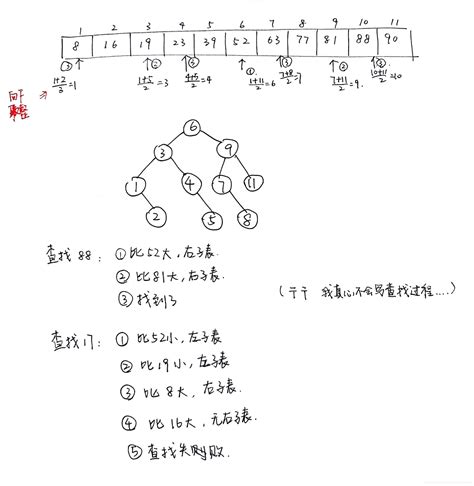 1 2 3 4 5 6 7 8 9 10 11
8 16 19 23 39 52 63 77 81 88 90
③ ② ④ ① ③ ② ③
向下
取整
1+2/2=1 1+5/2=3 4+5/2=4 1+11/2=6 7+8/2=7 7+11/2=9 10+11/2=10
6
3 9
1 4 7 11
2 5 8
查找88: ①比52大,右子表.
②比81大,右子表.
③找到了
(于于 我真心不会写查找过程....)
查找17: ①比52小,左子表
②比19小,左子表.
③比8大,右子表.
④比16大,无右子表.
⑤查找失败.